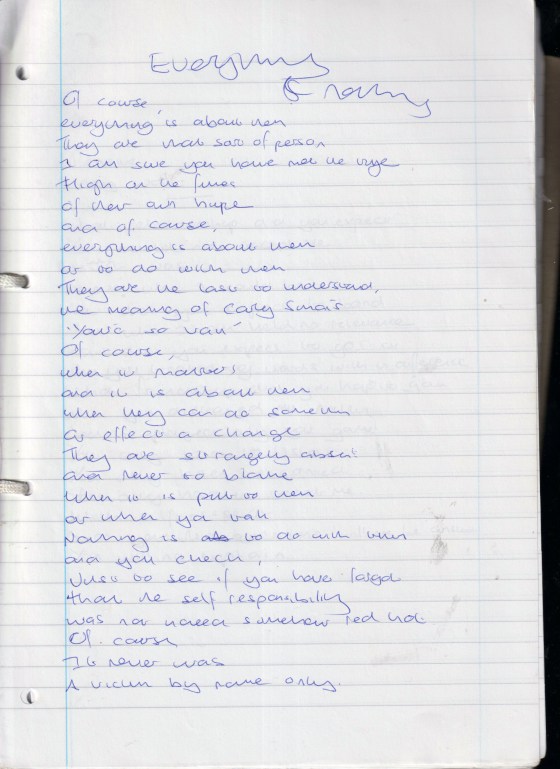 Everything
& nothing
Of course,
everything is about them
They are that sort of person
I am sure you have met the type
High on the fumes
of their own hype
and of course,
everything is about them
or to do with them
They are the last to understand,
the meaning of Carly Simon's
'You're so vain'
Of course,
when it matters
and it is about them
when they can do something
or effect a change
They are strangely absent
and never to blame
when it is put to them
or when
Nothing is to do with them
and you check,
Just to see if you have
that the self responsibility
was not somehow
Of course
It never was
A victim by name only.